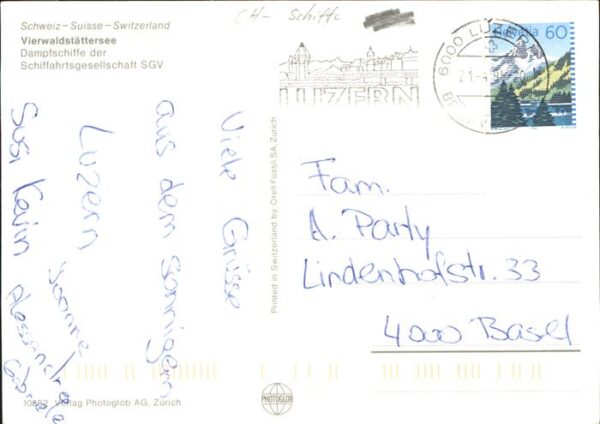 CH- Schiffe
Schweiz–Suisse–Switzerland
Vierwaldstättersee
Dampfschiffe der
Schiffahrtsgesellschaft SGV
LUZERN
6000 LUZERN
Helvetia 60
Viele Grüsse
aus dem sonnigen
Luzern
Susi Kevin
Yvonne
Alessandra
Gabriele
Printed in Switzerland by Orell Füssli SA, Zürich
Fam.
A. Party
Lindenhofstr. 33
4000 Basel
Verlag Photoglob AG, Zürich
PHOTOGLOB